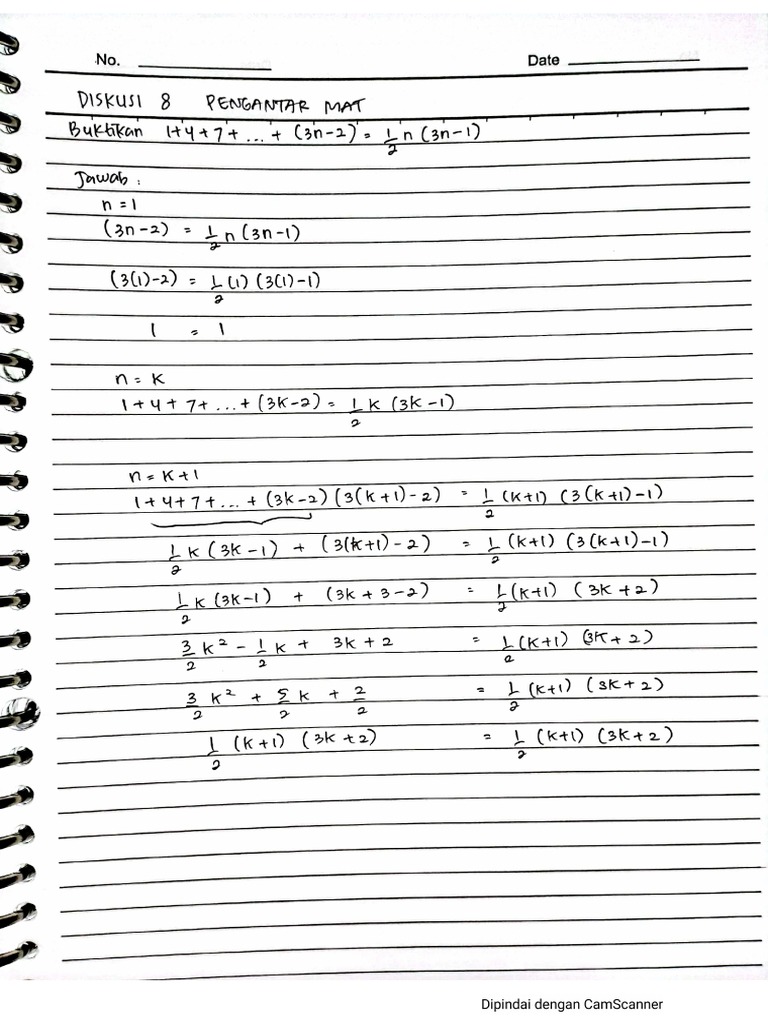 No. Date
DISKUSI 8 PENGANTAR MAT
Buktikan 1+4+7+...+(3n-2) = 1/2 n (3n-1)
Jawab :
n = 1
(3n-2) = 1/2 n (3n-1)
(3(1)-2) = 1/2 (1) (3(1)-1)
1 = 1
n = K
1+4+7+...+(3K-2) = 1/2 K (3K-1)
n = K+1
1+4+7+...+(3K-2)(3(K+1)-2) = 1/2 (K+1) (3(K+1)-1)
1/2 K (3K-1) + (3(K+1)-2) = 1/2 (K+1) (3(K+1)-1)
1/2 K (3K-1) + (3K+3-2) = 1/2 (K+1) (3K+2)
3/2 K² - 1/2 K + 3K+2 = 1/2 (K+1) (3K+2)
3/2 K² + 5/2 K + 2/2 = 1/2 (K+1) (3K+2)
1/2 (K+1) (3K+2) = 1/2 (K+1) (3K+2)
Dipindai dengan CamScanner